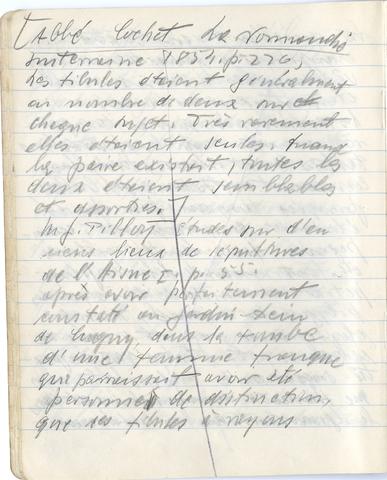 [Abbé Cochet La Normandie
souterraine 1854. p. 270,
Les fibules étaient généralement
au nombre de deux sur
chaque sujet. Très rarement
elles étaient seules. quand
la paire existait, toutes les
deux étaient semblables
et assorties.]
M. J. Pilloy études sur d'an
ciens lieux de sépultures
de l'Aisne I. p. 55.
après avoir parfaitement
constaté au
de Lugny, dans la tombe
d'une femme franque
qui paraissait avoir été
personne de distinction,
que ses fibules à rayons